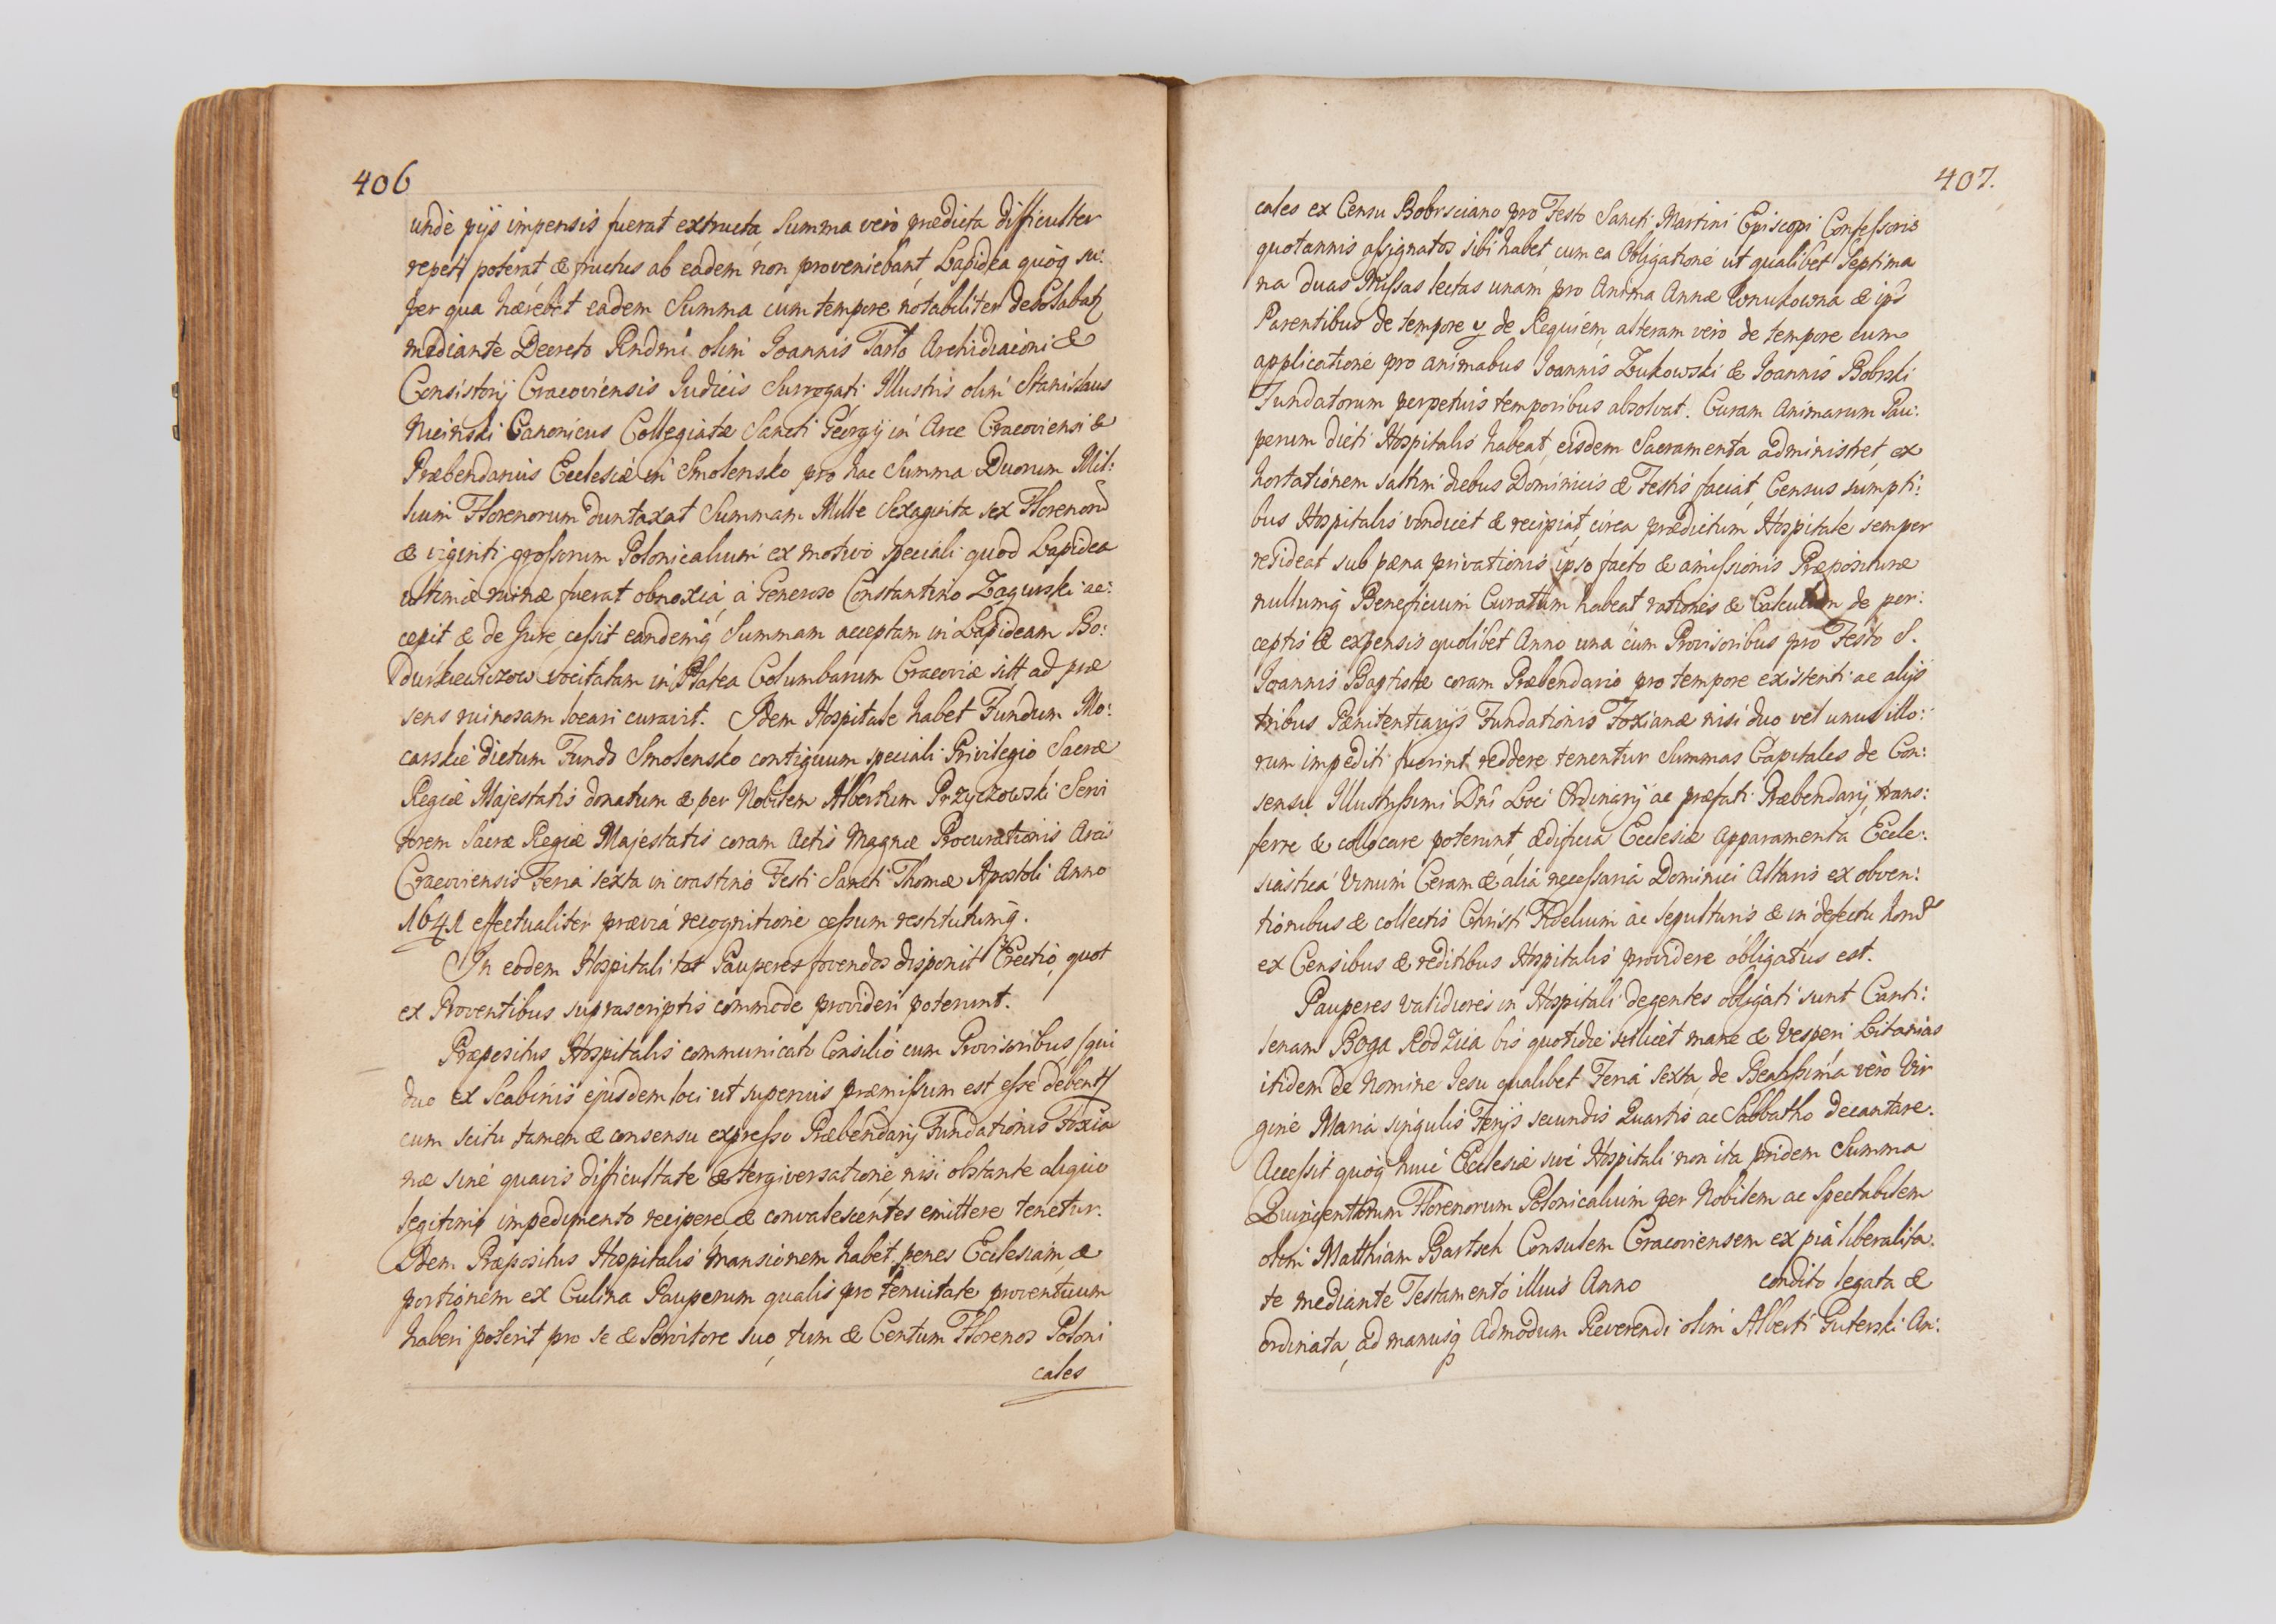 406
undè pijs impensis fuerat extructa, Summa verò prædicta difficulter
repeti poterat & fructus ab eadem non proveniebant, Lapidea quóq su:
per qua hærebat eadem Summa cum tempore notabiliter desolabatz
mediante Decreto Rndmi olim Joannis Tarło Archidiaconi &
Consistorij Cracoviensis Judicis Surrogati Illustris olim Stanislaus
Canonicus Collegiatæ Sancti Georgij in Arce Cracoviensi &
Præbendarius Ecclesiæ in Smolensko pro hac Summa Duorum Mil:
lium Florenorum duntaxat Summam Mille Sexaginta sex Florenorū
& viginti grossorum Polonicalium ex motivo speciali quod Lapidea
ultimæ ruinæ fuerat obnoxia, à Generoso Constantino Zagurski ac:
cepit & de Jure cessit eandemq́ Summam acceptam in Lapideam Bo:
durkiewiczow vocitatam in Platea Columbarum Cracoviæ sitt ad præ
sens ruinosam locari curavit. Idem Hospitale habet Fundum Mo:
carskie dictum Fundo Smolensko contiguum speciali Privilegio Sacræ
Regiæ Majestatis donatum & per Nobilem Albertum Przyczowski Servi
torem Sacræ Regiæ Majestatis coram Actis Magnæ Procurationis Arcis
Cracoviensis Feria sexta in crastino Festi Sancti Thomæ Apostoli Anno
1641 effectualiter præviá recognitione cessum restitutumq́.
In eodem Hospitali tot Pauperes fovendos disponit Erectio, quot
ex Proventibus suprascriptis commodè provideri poterunt.
Præpositus Hospitalis communicato Consilio cum Provisoribus /qui
duo ex Scabinis ejusdem loci ut superius præmissum est esse debent/
cum scitu tamen & consensu expresso Præbendarij Fundationis Foxia
næ sinè quavis difficultate & tergiversatione nisi obstante aliquo
legitimo impedimento recipere & convalescentes emittere tenetur.
Idem Præpositus Hospitalis mansionem habet penes Ecclesiam, &
portionem ex Culina Pauperum qualis pro tenuitate proventuum
haberi poterit pro se & Servitore suo, tum & Centum Florenos Poloni
cales
407.
cales ex Censu Bobrsciano pro Festo Sancti Martini Episcopi Confessoris
quotannis assignatos sibi habet, cum ea Obligatione ut qualibet Septima
na duas Missas lectas unam pro Anima Annæ Wnukowna & ips
Parentibus de tempore v de Requiem, alteram verò de tempore cum
applicatione pro animabus Joannis Zukowski & Joannis Bobrski
Fundatorum perpetuis temporibus absolvat. Curam Animarum Pau:
perum dicti Hospitalis habeat, eisdem Sacramenta administret, ex
hortationem saltim diebus Dominicis & Festis faciat, Census sumpti:
bus Hospitalis vindicet & recipiat, circa prædictum Hospitale semper
resideat sub pæna privationis ipso facto & amissionis Præpositurae
nullumq́ Beneficium Curatum habeat rationes & Calculum de per:
ceptis & expensis quolibet Anno una cum Provisoribus pro Festo S.
Joannis Baptistæ coram Præbendario pro tempore existenti ac alijs
tribus Pænitentiarijs Fundationis Foxianæ nisi duo vel unus illo:
rum impediti fuerint, reddere tenentur Summas Capitales de Con:
sensu Illustrissimi Dni Loci Ordinarij ac præfati Præbendarij trans:
ferre & collocare poterunt, ædificia Ecclesiæ Apparamenta Eccle:
siastica Vinum Ceram & alia necessaria Dominici Altaris ex obven:
tionibus & collectis Christi Fidelium ac sepulturis & in defectu horū
ex Censibus & reditibus Hospitalis providere obligatus est.
Pauperes validiores in Hospitali degentes obligati sunt Canti:
lenam Boga Rodzica bis quotidie scilicet mane & Vesperi, Litanias
itidem de Nomine Jesu qualibet Feriá sexta, de Beatissima verò Vir
gine Maria singulis Ferijs secundis Quartis ac Sabbatho decantare.
Accessit quóq huic Ecclesiæ sivè Hospitali non ita pridem Summa
Quingentorum Florenorum Polonicalium per Nobilem ac Spectabilem
olim Matthiam Bartsch Consulem Cracoviensem ex pia liberalita:
te mediante Testamento illius Anno condito legata &
ordinata, ad manusq́ Admodum Reverendi olim Alberti Guterski Ar: